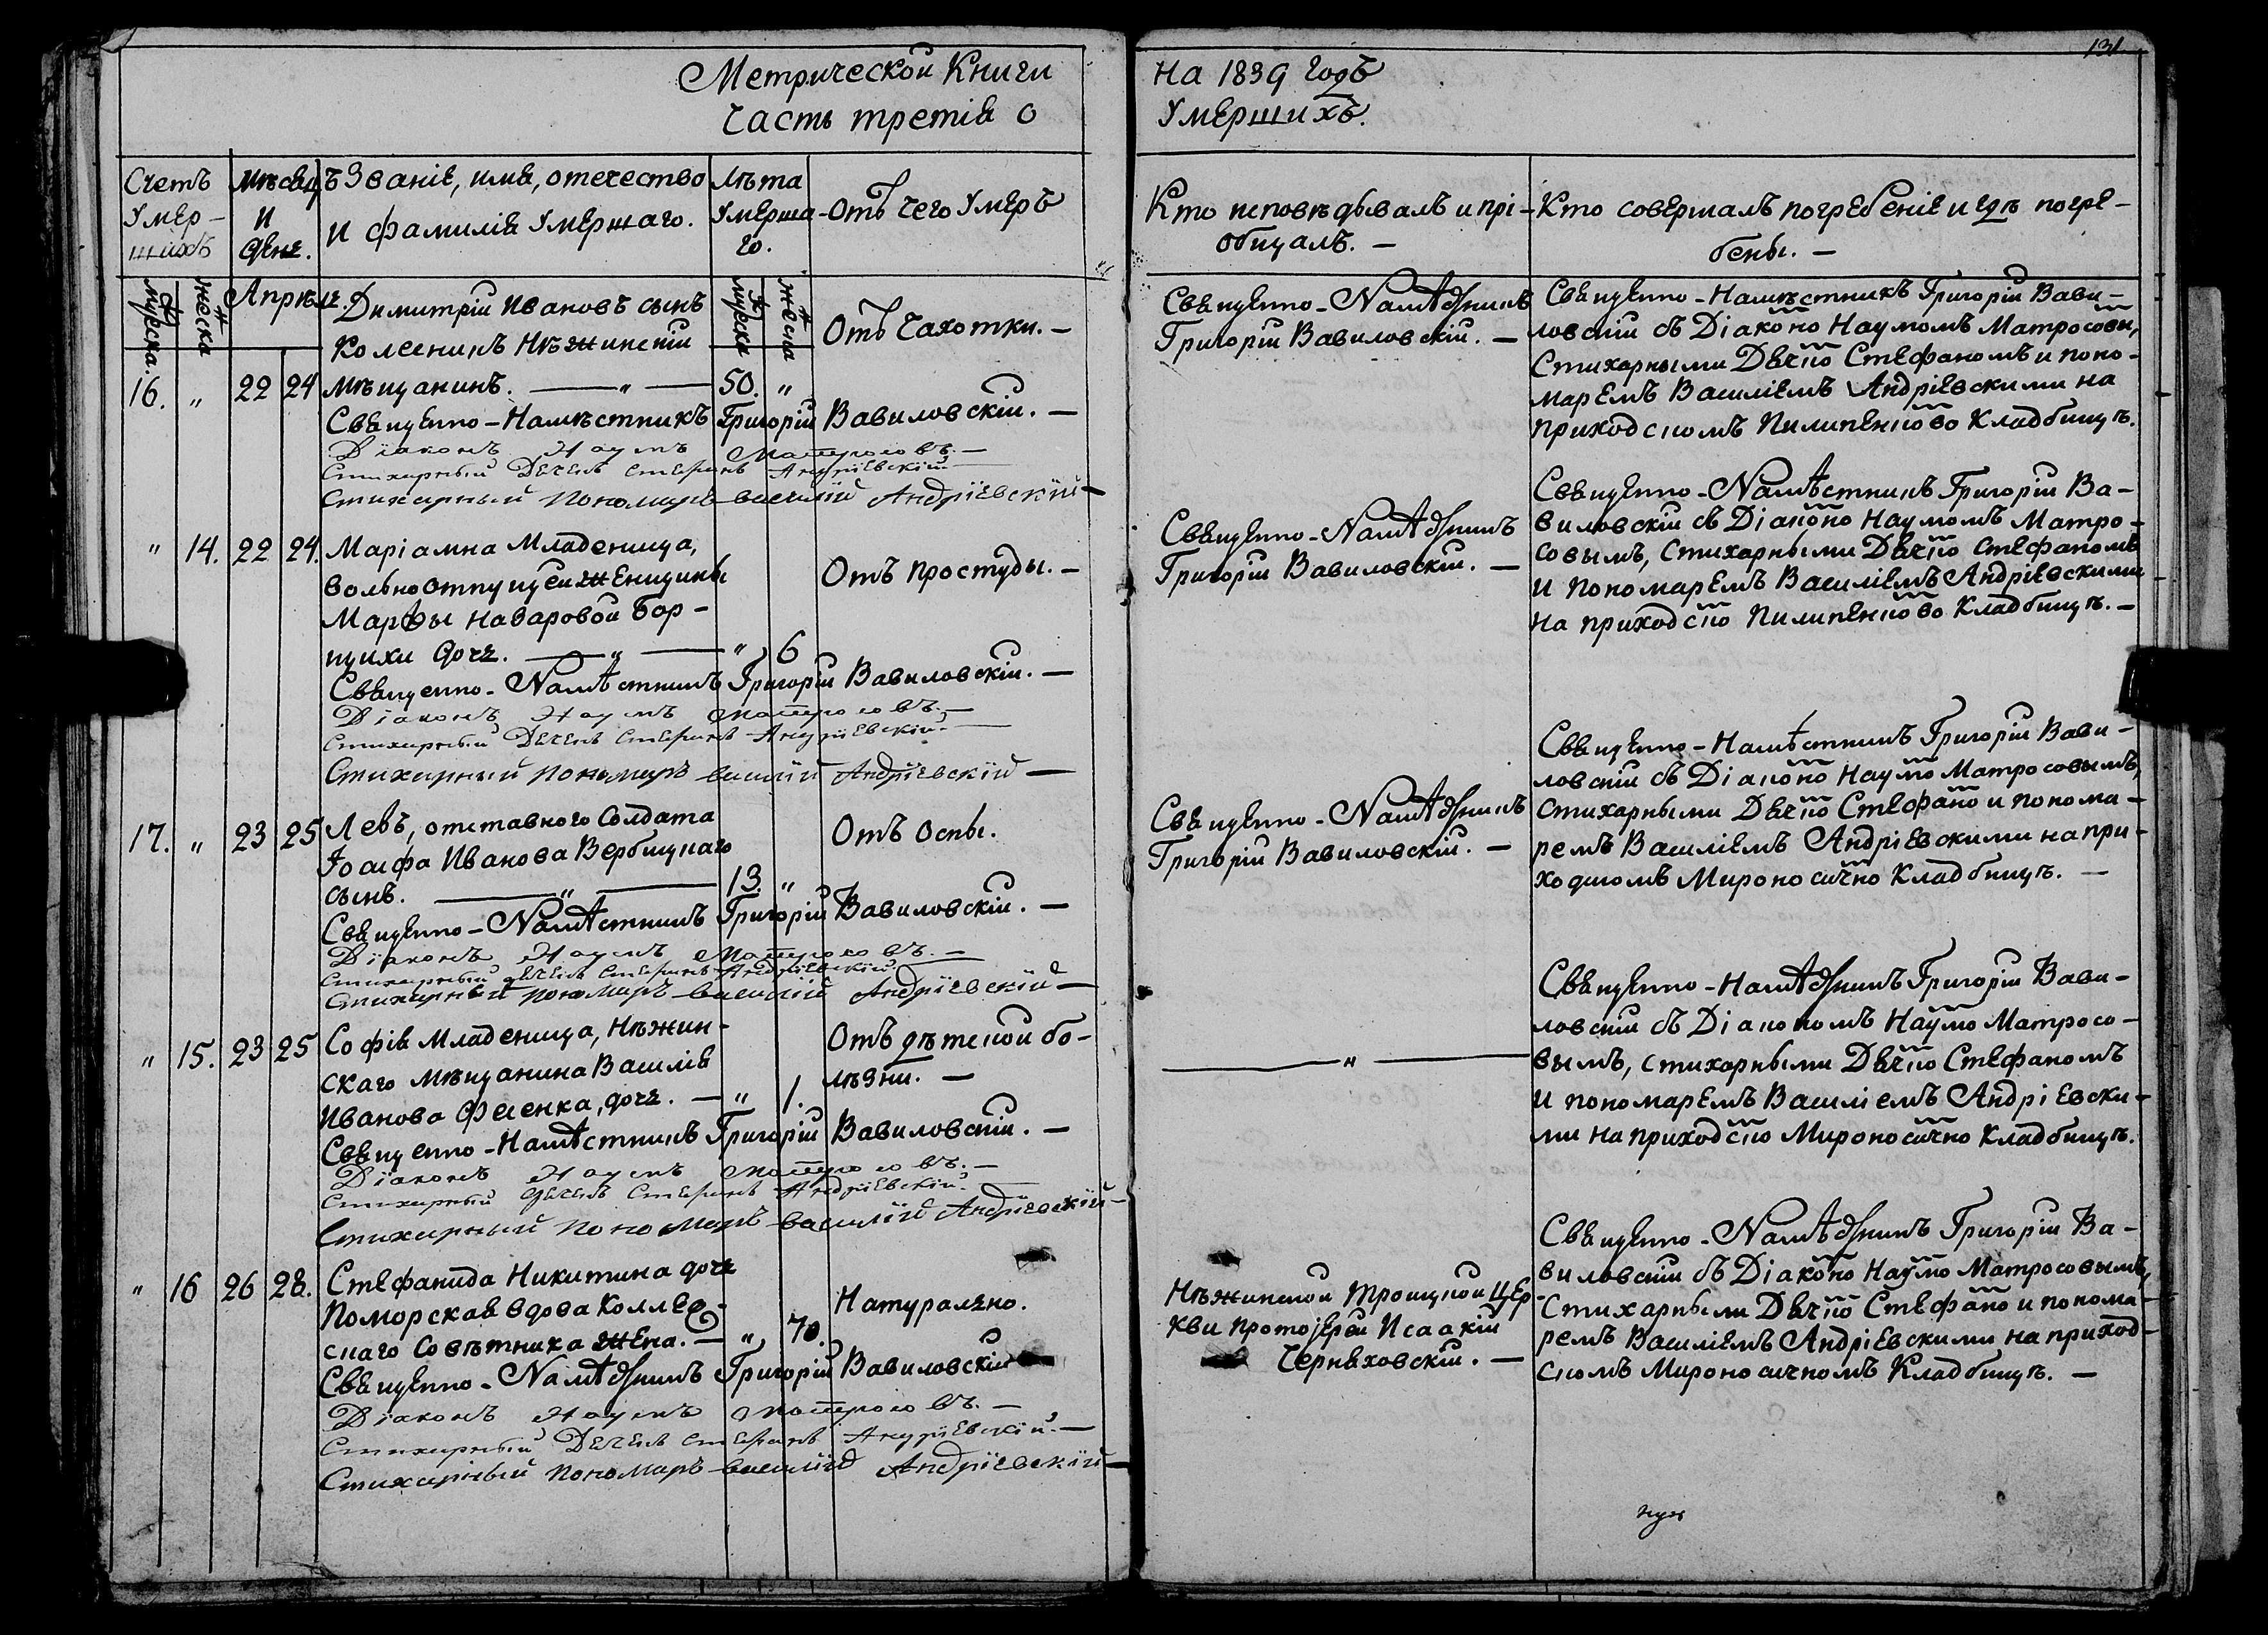 131
Метрической Книги
Часть третія о
на 1839 годъ
Умершихъ.
Счетъ Умер-шихъ
Мѣсяцъ и день.
Званіе, имя, отечество
и фамилія Умершаго.
Лѣта Умерша-го.
Отъ чего Умеръ
Кто исповѣдывалъ и прі-
общалъ. —
Кто совершалъ погребеніе и гдѣ погре-
бены. —
мужеска
женска
Апрѣль.
мужеска
женска
Димитрій Ивановъ сынъ
Колесникъ Нѣжинскій
16. „ 22 24 мѣщанинъ. — „ — 50. „
Отъ Чахотки. —
Священно-Намѣстникъ Григорій Вавиловскій. —
Діаконъ Наумъ Матросовъ. —
Стихарный Дьячекъ Стефанъ Андріевскій —
Стихарный Пономарь Василій Андріевскій —
Священно-Намѣстникъ
Григорій Вавиловскій. —
Священно-Намѣстникъ Григорій Вави-
ловскій съ Діаконо Наумомъ Матросовы,
Стихарными Дячко Стефаномъ и поно-
маремъ Василіемъ Андріевскими на
приходскомъ Пилипенково Кладбищѣ.
„ 14. 22 24. Маріамна Младеница,
вольноотпущеи женщины
Марѳы Назаровой Бор-
щихи дочь. — „ — „ 6
Отъ простуды. —
Священно-Намѣстникъ Григорій Вавиловскій. —
Діаконъ Наумъ Матросовъ. —
Стихарный Дьячекъ Стефанъ Андріевскій —
Стихарный Пономарь Василій Андріевскій —
Священно-Намѣстникъ
Григорій Вавиловскій. —
Священно-Намѣстникъ Григорій Ва-
виловскій съ Діаконо Наумомъ Матро-
совымъ, Стихарными Дячко Стефаномъ
и пономаремъ Василіемъ Андріевскими
на приходско Пилипенково Кладбищѣ. —
17. „ 23 25 Левъ, отставного Солдата
Іосифа Иванова Вербицкаго
сынъ. — „ — 13. „
Отъ Оспы.
Священно-Намѣстникъ Григорій Вавиловскій. —
Діаконъ Наумъ Матросовъ. —
Стихарный Дьячекъ Стефанъ Андріевскій
Стихарный Пономарь Василій Андріевскій —
Священно-Намѣстникъ
Григорій Вавиловскій. —
Священно-Намѣстникъ Григорій Вави-
ловскій съ Діаконо Наумо Матросовымъ,
стихарными Дячко Стефано и понома-
ремъ Василіемъ Андріевскими на при-
ходскомъ Мироносично Кладбищѣ. —
„ 15. 23 25 Софія Младеница, Нѣжин-
скаго Мѣщанина Василія
Иванова Фесенка, дочь. — „ 1.
Отъ дѣтской бо-
лѣзни. —
Священно-Намѣстникъ Григорій Вавиловскій. —
Діаконъ Наумъ Матросовъ. —
Стихарный Дьячекъ Стефанъ Андріевскій. —
Стихарный Пономарь Василій Андріевскій —
— „ —
Священно-Намѣстникъ Григорій Вави-
ловскій съ Діакономъ Наумо Матросо-
вымъ, стихарными Дячко Стефаномъ
и пономаремъ Василіемъ Андріевски-
ми на приходско Мироносично Кладбищѣ.
„ 16 26 28. Стефанида Никитина дочь
Поморская вдова Коллеж-
скаго Совѣтника жена. — „ 70.
Натурально.
Священно-Намѣстникъ Григорій Вавиловскій
Діаконъ Наумъ Матросовъ. —
Стихарный Дьячекъ Стефанъ Андріевскій. —
Стихарный Пономарь Василій Андріевскій —
Нѣжинской Троицкой Цер-
кви протоіерей Исаакій
Черняховскій. —
Священно-Намѣстникъ Григорій Ва-
виловскій съ Діаконо Наумо Матросовымъ,
Стихарными Дячко Стефано и понома-
ремъ Василіемъ Андріевскими на приход-
скомъ Мироносичномъ Кладбищѣ. —